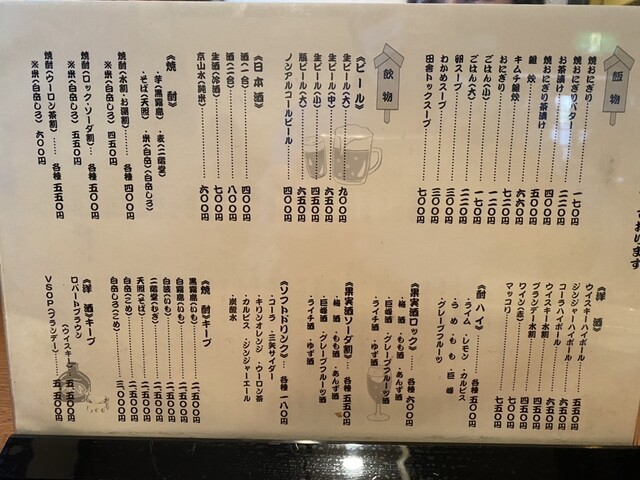 ております
飯物
焼おにぎり 一七〇円
焼おにぎりバター 二二〇円
お茶漬け 四〇〇円
焼おにぎり茶漬け
雑炊
キムチ雑炊
おにぎり
ごはん(小) 一二〇円
ごはん(大) 一七〇円
卵スープ
わかめスープ 三〇〇円
田舎トックスープ 七〇〇円
飲物
《ビール》
生ビール(大) 九〇〇円
生ビール(中) 六五〇円
生ビール(小) 四五〇円
瓶ビール(大) 六五〇円
ノンアルコールビール 四〇〇円
《日本酒》
酒(一合) 四〇〇円
酒(二合) 八〇〇円
生酒(冷酒) 七〇〇円
京山水(純米) 六〇〇円
《焼酎》
・芋(黒霧島) ・麦(二階堂)
・そば(天照) ・米(白岳)(白岳しろ)
焼酎(水割・お湯割) 各種 四〇〇円
※米(白岳しろ) 四五〇円
焼酎(ロック・ソーダ割) 各種 五〇〇円
※米(白岳しろ) 五五〇円
焼酎(ウーロン茶割) 各種 五五〇円
※米(白岳しろ) 六〇〇円
《洋酒》
ウイスキーハイボール 五五〇円
ジンジャーハイボール 六五〇円
コーラハイボール 六五〇円
ウイスキー水割
ブランデー水割
ワイン(赤)
マッコリ 七五〇円
《酎ハイ》 各種 五〇〇円
・ライム・レモン・カルピス
・うめ・もも・巨峰
・グレープフルーツ
《果実酒ロック》 各種 六〇〇円
・梅酒・もも酒・あんず酒
・巨峰酒・グレープフルーツ酒
・ライチ酒・ゆず酒
《果実酒ソーダ割》 各種 五五〇円
・梅酒・もも酒・あんず酒
・巨峰酒・グレープフルーツ酒
・ライチ酒・ゆず酒
《ソフトドリンク》 各種 一八〇円
・コーラ・三矢サイダー
・キリンオレンジ・ウーロン茶
・カルピス・ジンジャーエール
・炭酸水
《焼酎》キープ
黒霧島(いも) 二、五〇〇円
白霧島(いも) 二、五〇〇円
白波(いも) 二、五〇〇円
二階堂(むぎ) 二、五〇〇円
天照(そば) 二、五〇〇円
白岳(こめ) 二、五〇〇円
白岳しろ(こめ) 三、〇〇〇円
《洋酒》キープ
ロバートブラウン(ウイスキー) 五、五〇〇円
VSOP(ブランデー) 五、五〇〇円